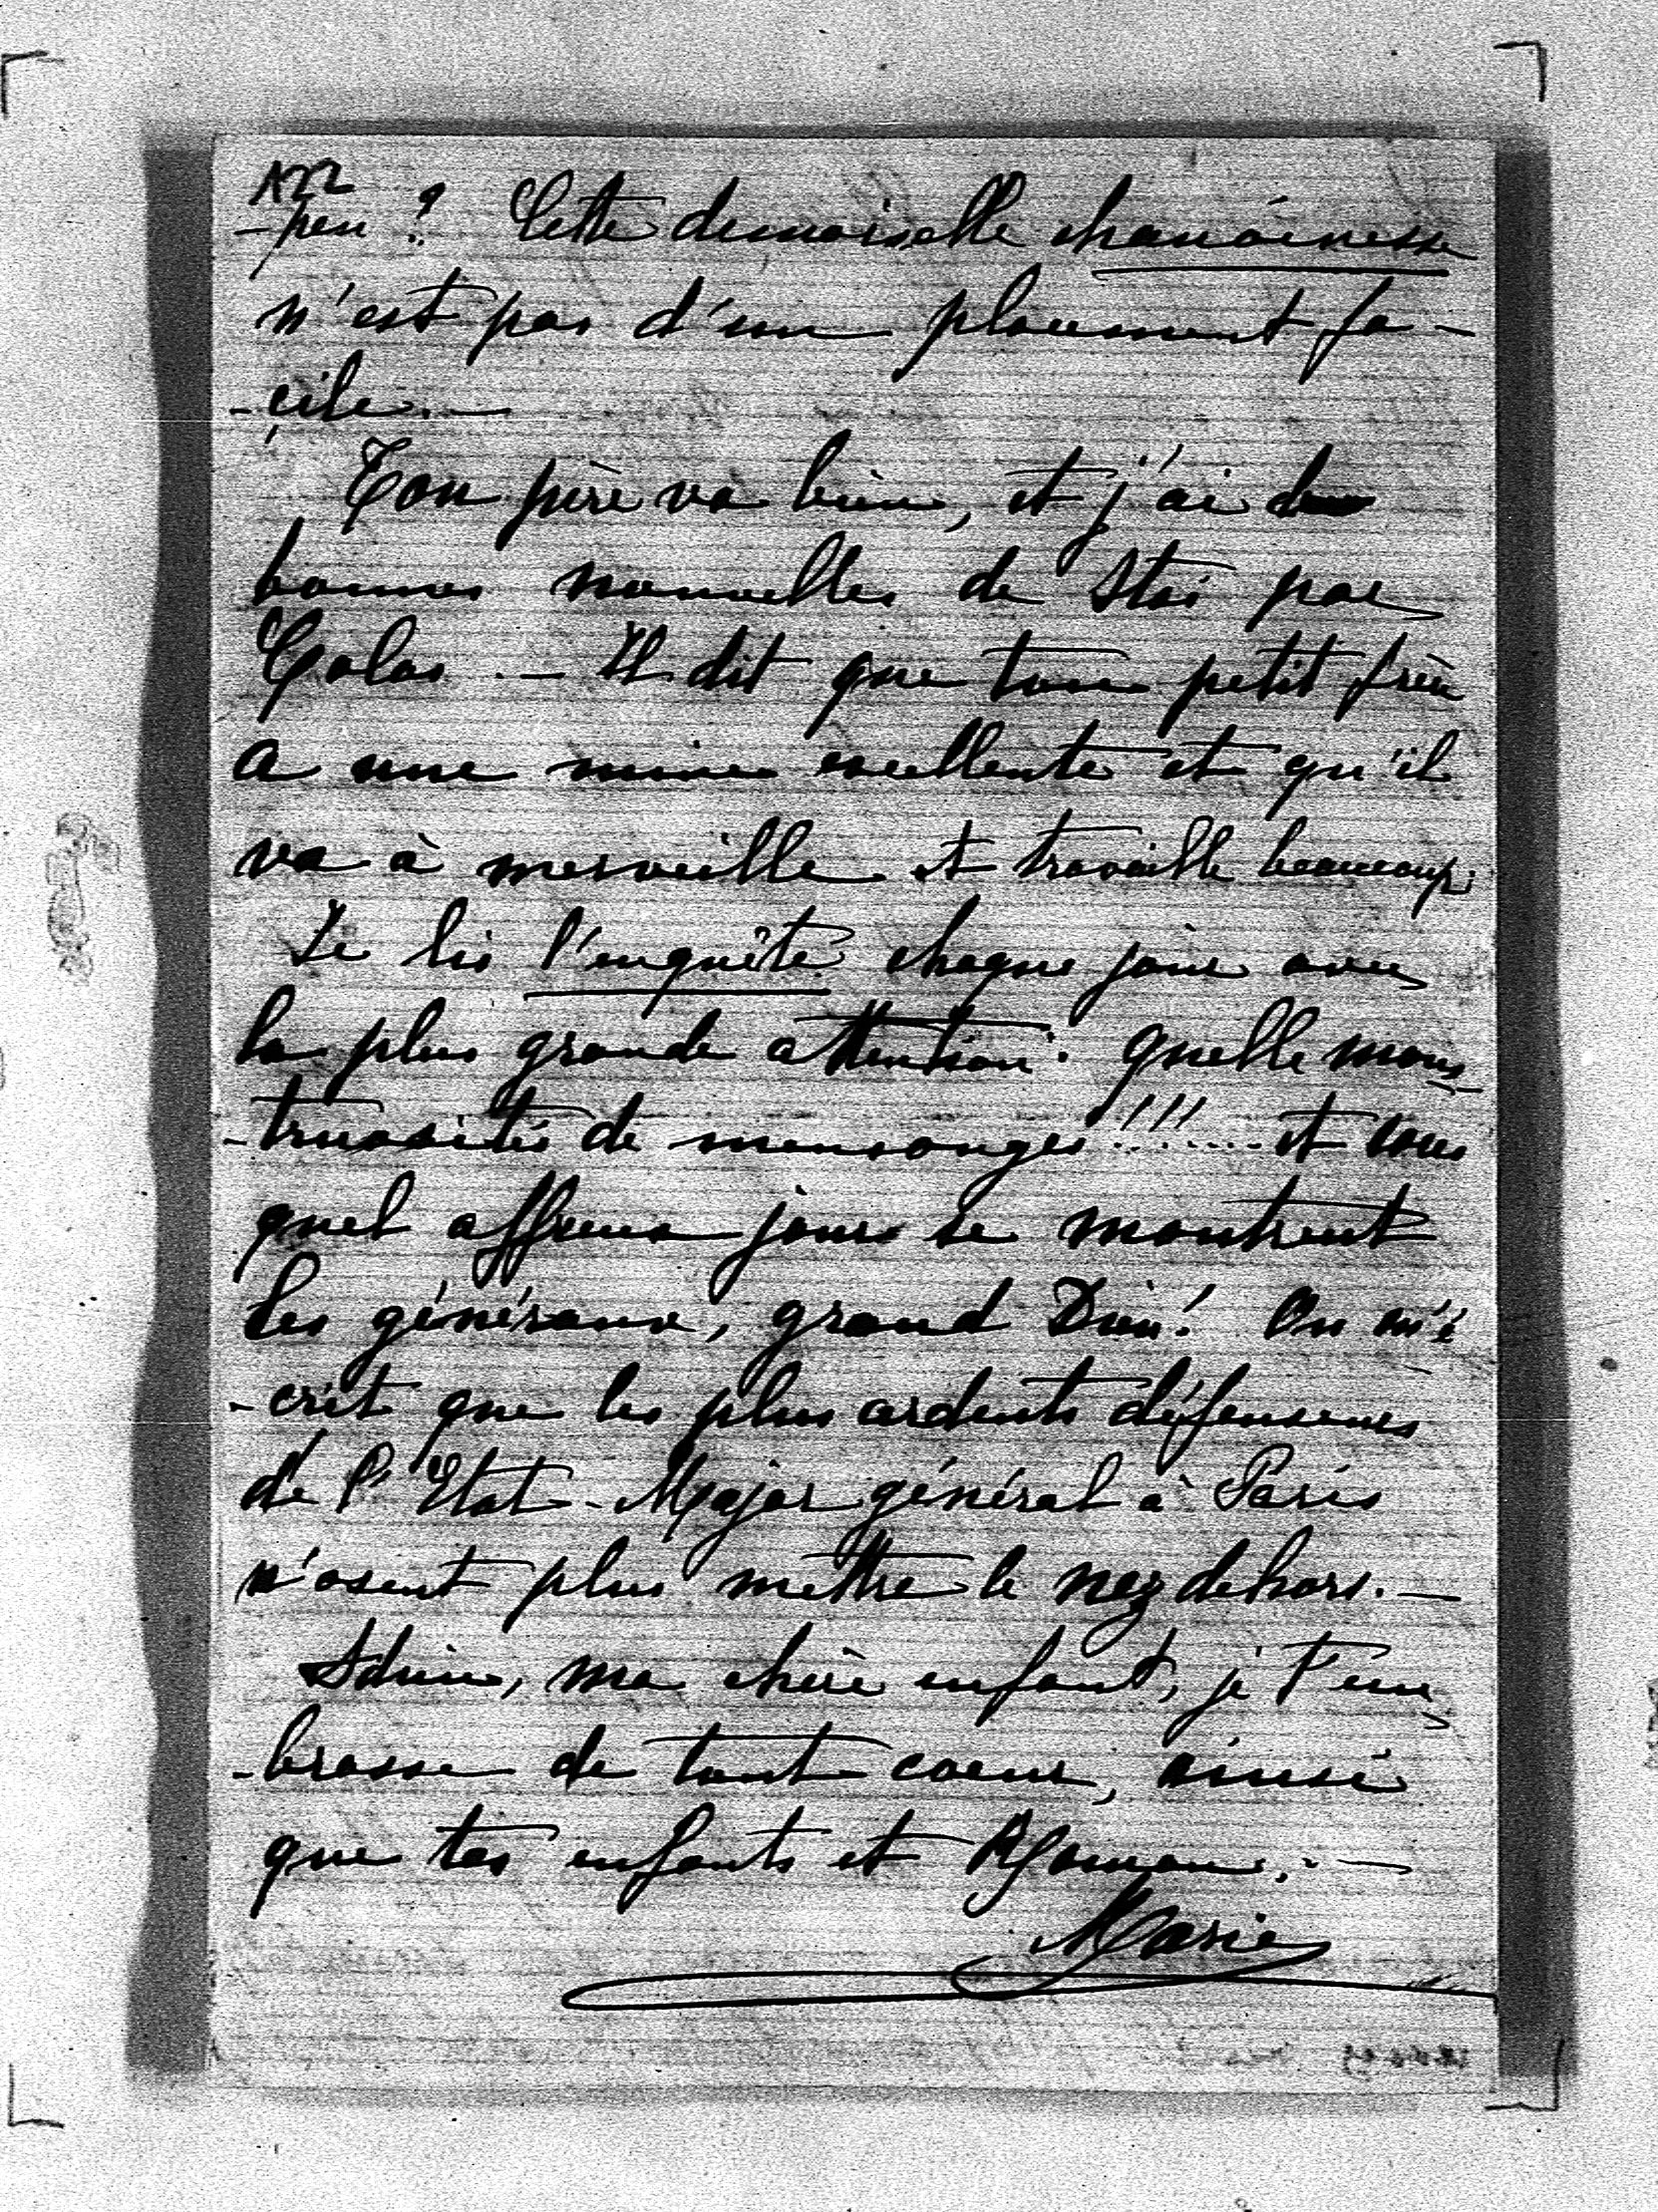 -peu ? Cette demoiselle chanoinesse
n'est pas d'un placement fa-
-cile. —
Ton père va bien, et j'ai de
bonnes nouvelles de Stas par
Golas. — Il dit que ton petit frère
a une mine excellente et qu'il
va à merveille et travaille beaucoup.
Je lis l'enquête chaque jour avec
la plus grande attention. quelle mons-
-truosités de mensonges!!!.... et sous
quel affreux jour se montrent
les généraux, grand Dieu! On m'é
-crit que les plus ardents défenseurs
de l'Etat-Major général à Paris
n'osent plus mettre le nez dehors. —
Adieu, ma chère enfant, je t'em-
-brasse de tout coeur, ainsi
que tes enfants et Roman. —
Marie